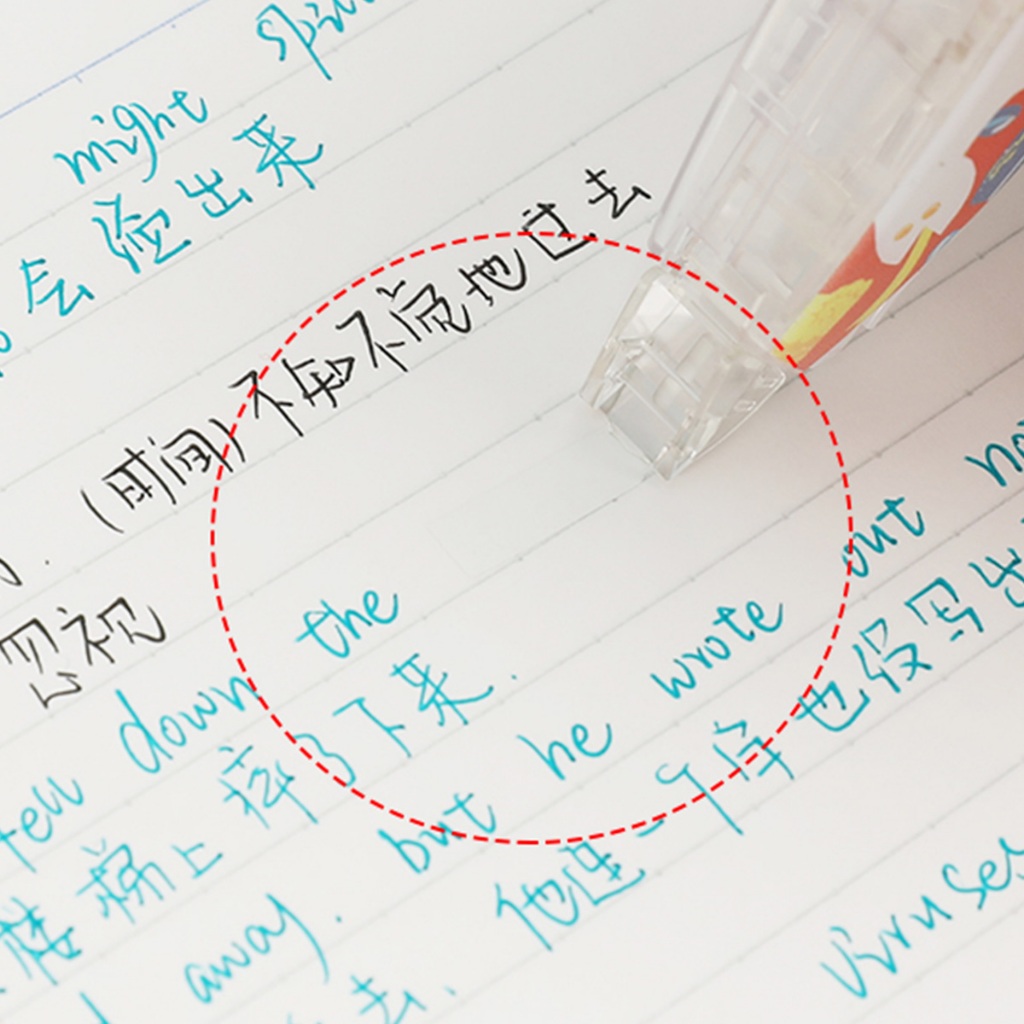 might
会溢出来
(时间)不知不觉地过去
忽视
the
down
摔了下来.
楼梯上
but he wrote out
他连一个字也没写出
away.
去.
viruses